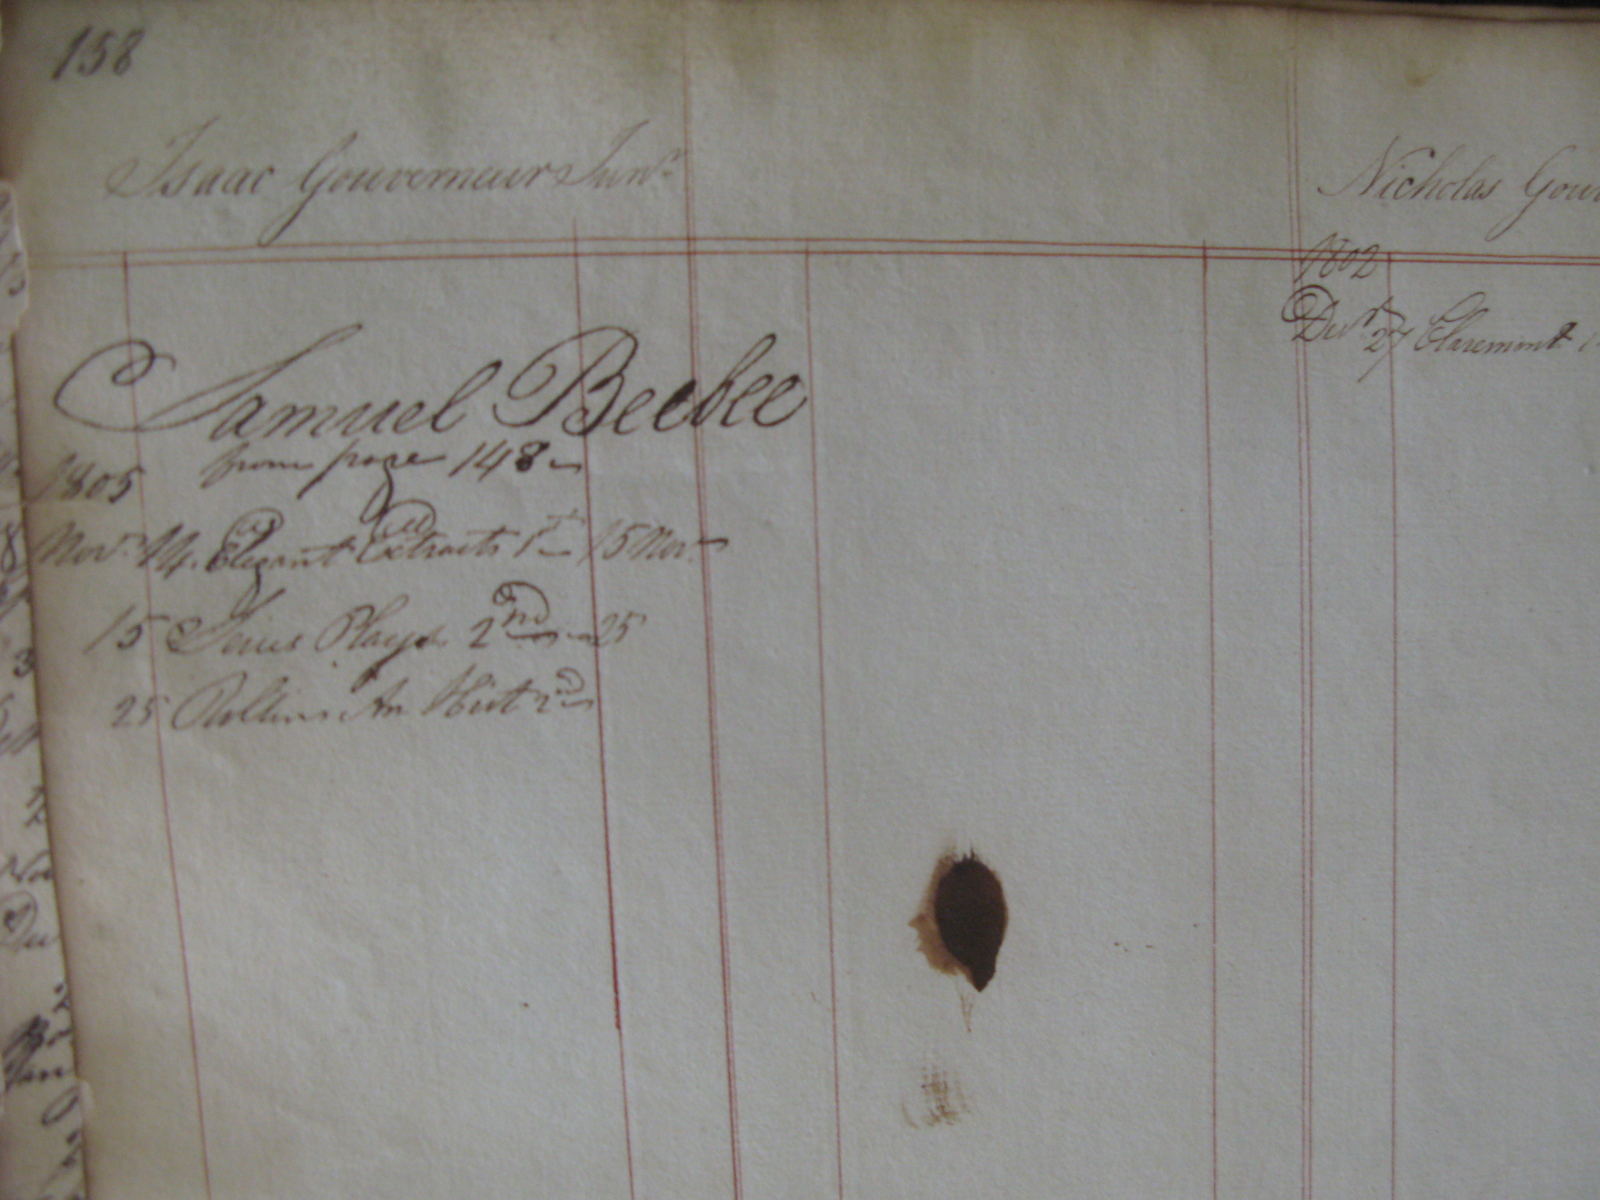 158
Isaac Gouverneur Junr
Samuel Beebee
from page 148
1805
Novr 14. Elegant Extracts 1st 15 Novr
15 Plays 2nd 25
25 Rollins An Hist 2nd
Nicholas Gouv
1802
27 Claremont